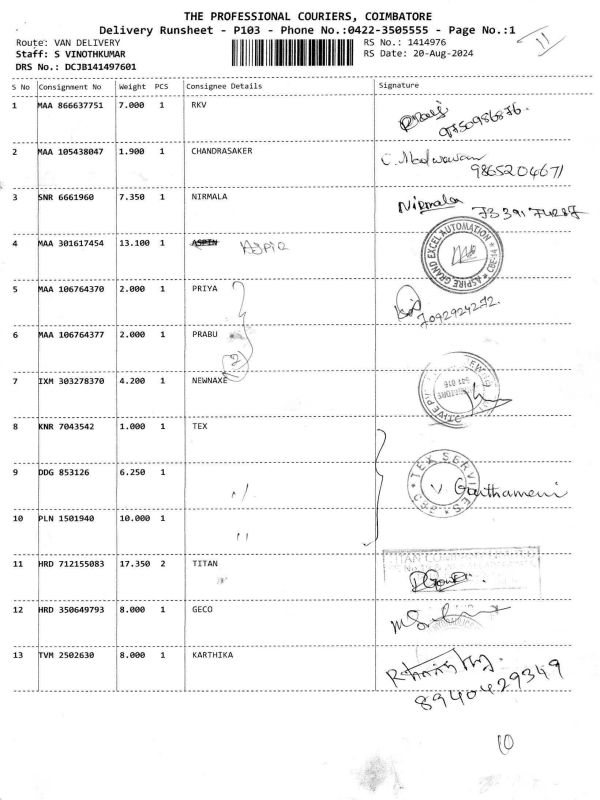 THE PROFESSIONAL COURIERS, COIMBATORE
Delivery Runsheet - P103 - Phone No.:0422-3505555 - Page No.:1
11
Route: VAN DELIVERY RS No.: 1414976
Staff: S VINOTHKUMAR RS Date: 20-Aug-2024
DRS No.: DCJB141497601
S No Consignment No Weight PCS Consignee Details Signature
1 MAA 866637751 7.000 1 RKV
9750986876.
2 MAA 105438047 1.900 1 CHANDRASAKER
9865204671
3 SNR 6661960 7.350 1 NIRMALA Nirmala
4 MAA 301617454 13.100 1 ASPIN ASPIR ASPIRE GRAND EXCEL AUTOMATION CBE-14
5 MAA 106764370 2.000 1 PRIYA
7092924272.
6 MAA 106764377 2.000 1 PRABU
(2)
7 IXM 303278370 4.200 1 NEWNAXE
8 KNR 7043542 1.000 1 TEX
9 DDG 853126 6.250 1 〃 TEX SERVICES V
10 PLN 1501940 10.000 1 〃
11 HRD 712155083 17.350 2 TITAN TITAN
12 HRD 350649793 8.000 1 GECO
13 TVM 2502630 8.000 1 KARTHIKA
8940429349
10